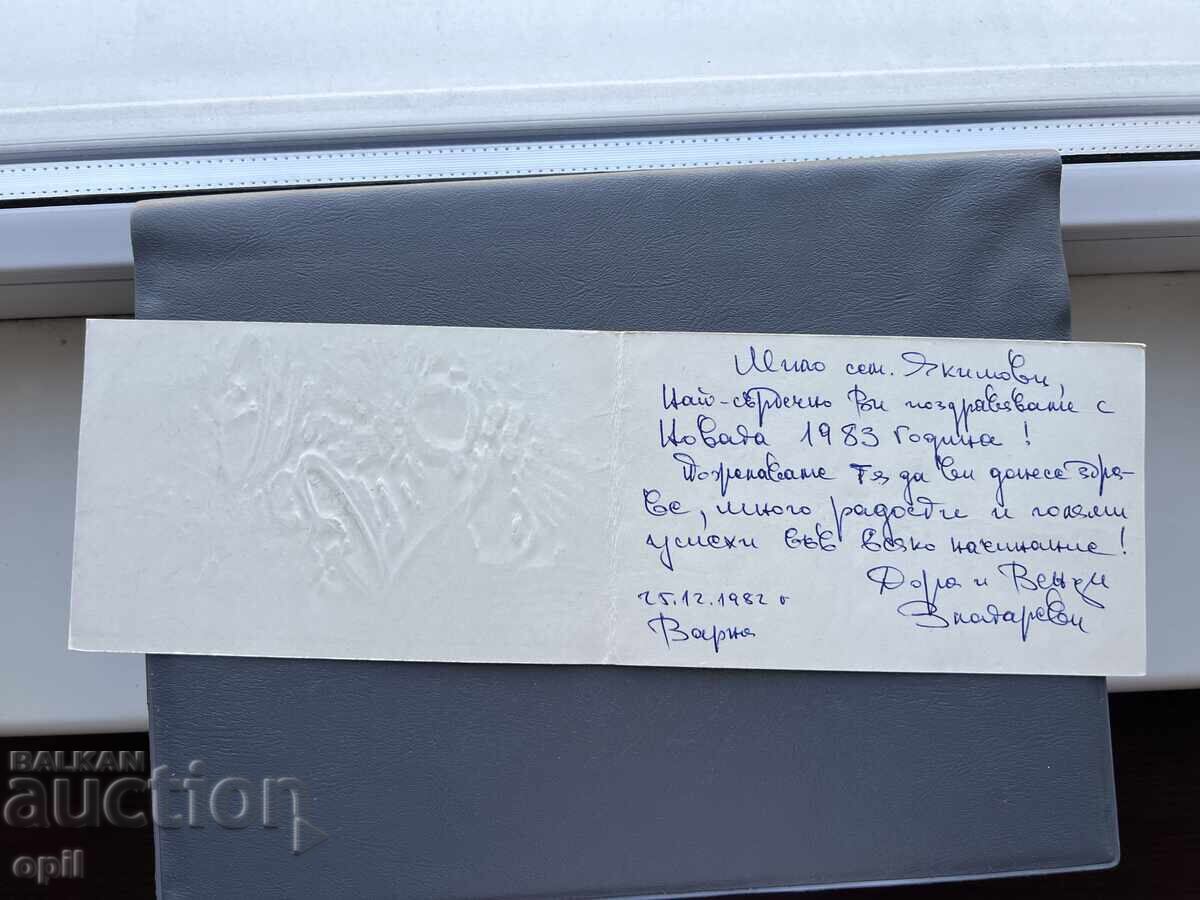 Мило сем. Якимови,
Най-сърдечно Ви поздравяваме с
Новата 1983 година!
Пожелаваме тя да ви донесе здра-
ве, много радости и големи
успехи във всяко начинание!
Дора и Венци
Златареви
25.12.1982 г
Варна
BALKAN
auction
opil